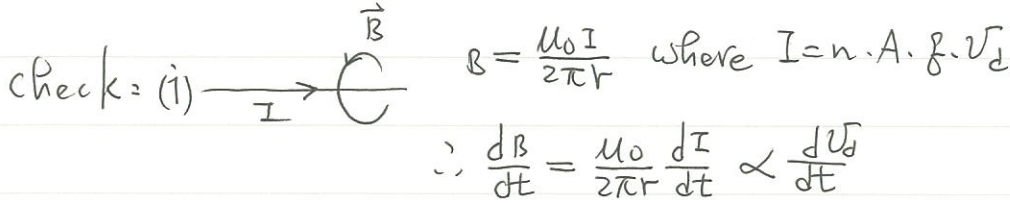 B⃗
check: (i) I B = μ₀I/2πr where I = n·A·q·v_d
∴ dB/dt = μ₀/2πr dI/dt ∝ dv_d/dt